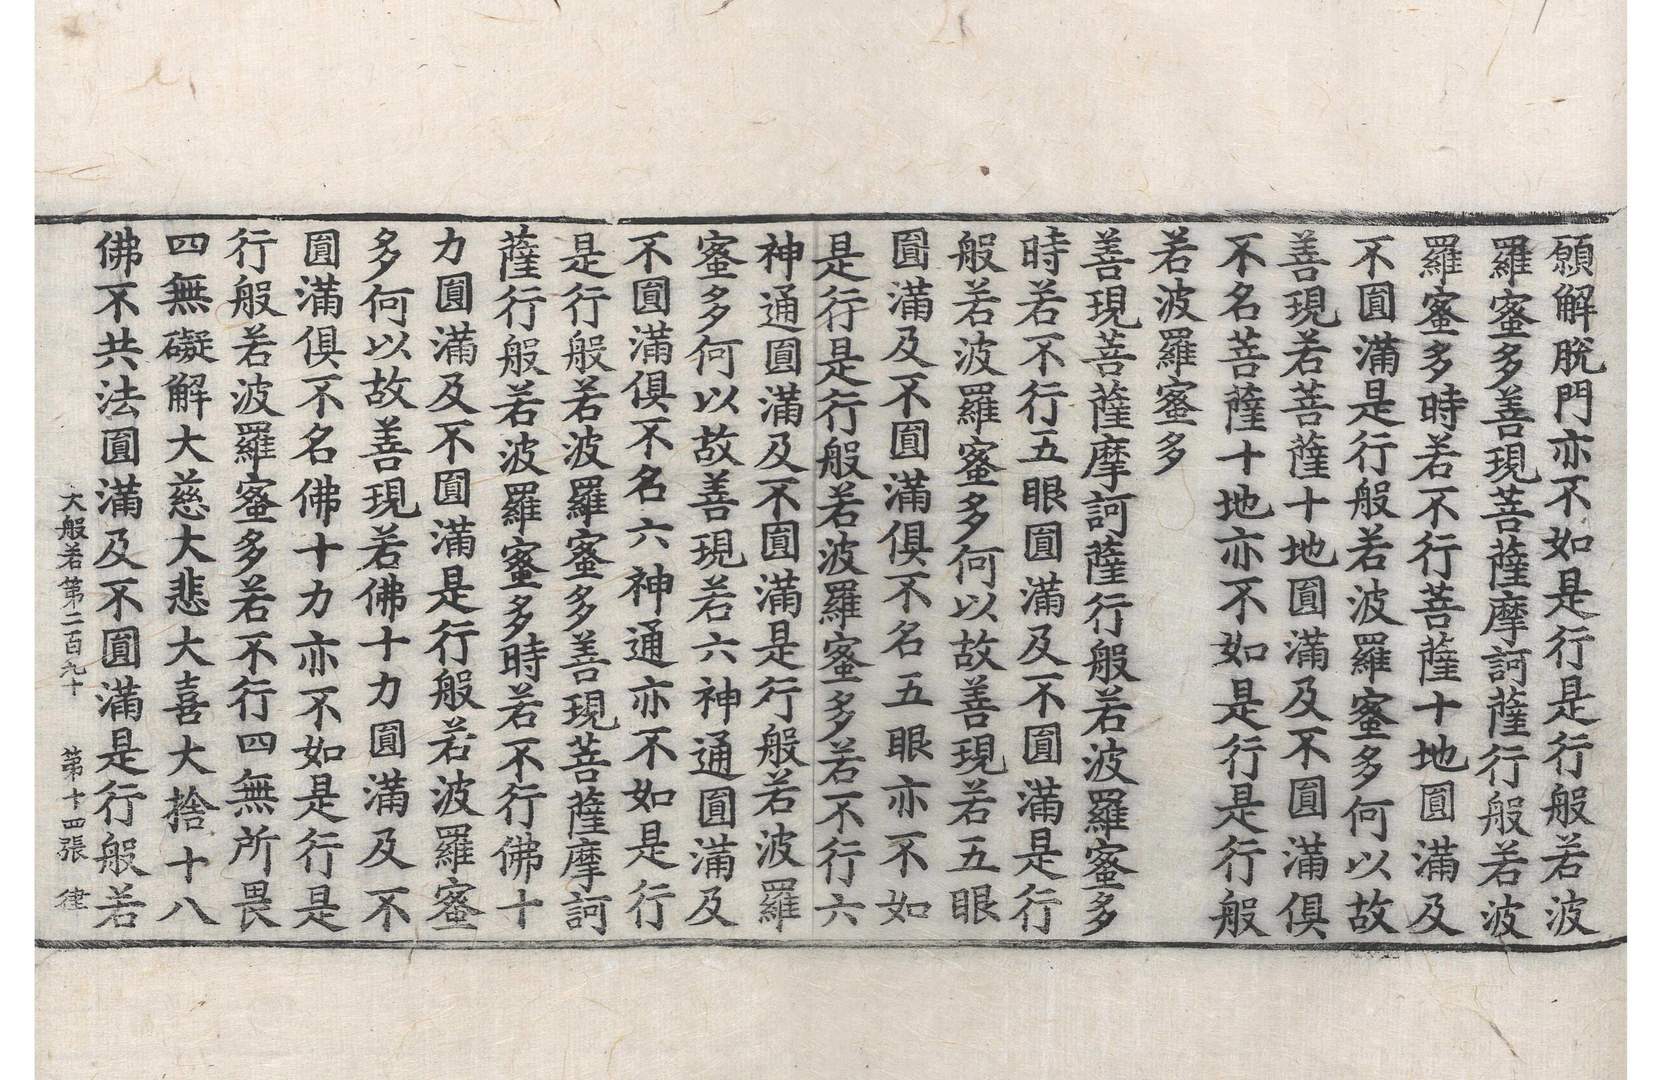 願解脫門亦不如是行是行般若波
羅蜜多善現菩薩摩訶薩行般若波
羅蜜多時若不行菩薩十地圓滿及
不圓滿是行般若波羅蜜多何以故
善現若菩薩十地圓滿及不圓滿俱
不名菩薩十地亦不如是行是行般
若波羅蜜多
善現菩薩摩訶薩行般若波羅蜜多
時若不行五眼圓滿及不圓滿是行
般若波羅蜜多何以故善現若五眼
圓滿及不圓滿俱不名五眼亦不如
是行是行般若波羅蜜多若不行六
神通圓滿及不圓滿是行般若波羅
蜜多何以故善現若六神通圓滿及
不圓滿俱不名六神通亦不如是行
是行般若波羅蜜多善現菩薩摩訶
薩行般若波羅蜜多時若不行佛十
力圓滿及不圓滿是行般若波羅蜜
多何以故善現若佛十力圓滿及不
圓滿俱不名佛十力亦不如是行是
行般若波羅蜜多若不行四無所畏
四無礙解大慈大悲大喜大捨十八
佛不共法圓滿及不圓滿是行般若
大般若第二百九十 第十四張 律